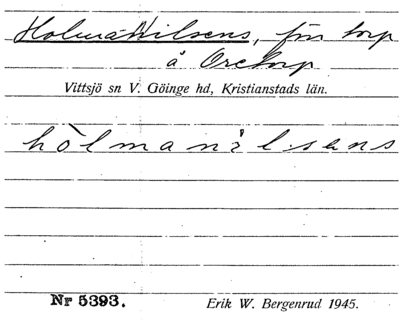 HolmaNilsens, f.ön torp
å Oretorp
Vittsjö sn V. Göinge hd, Kristianstads län.
hòlmanìlsens
Nr 5393.
Erik W. Bergenrud 1945.